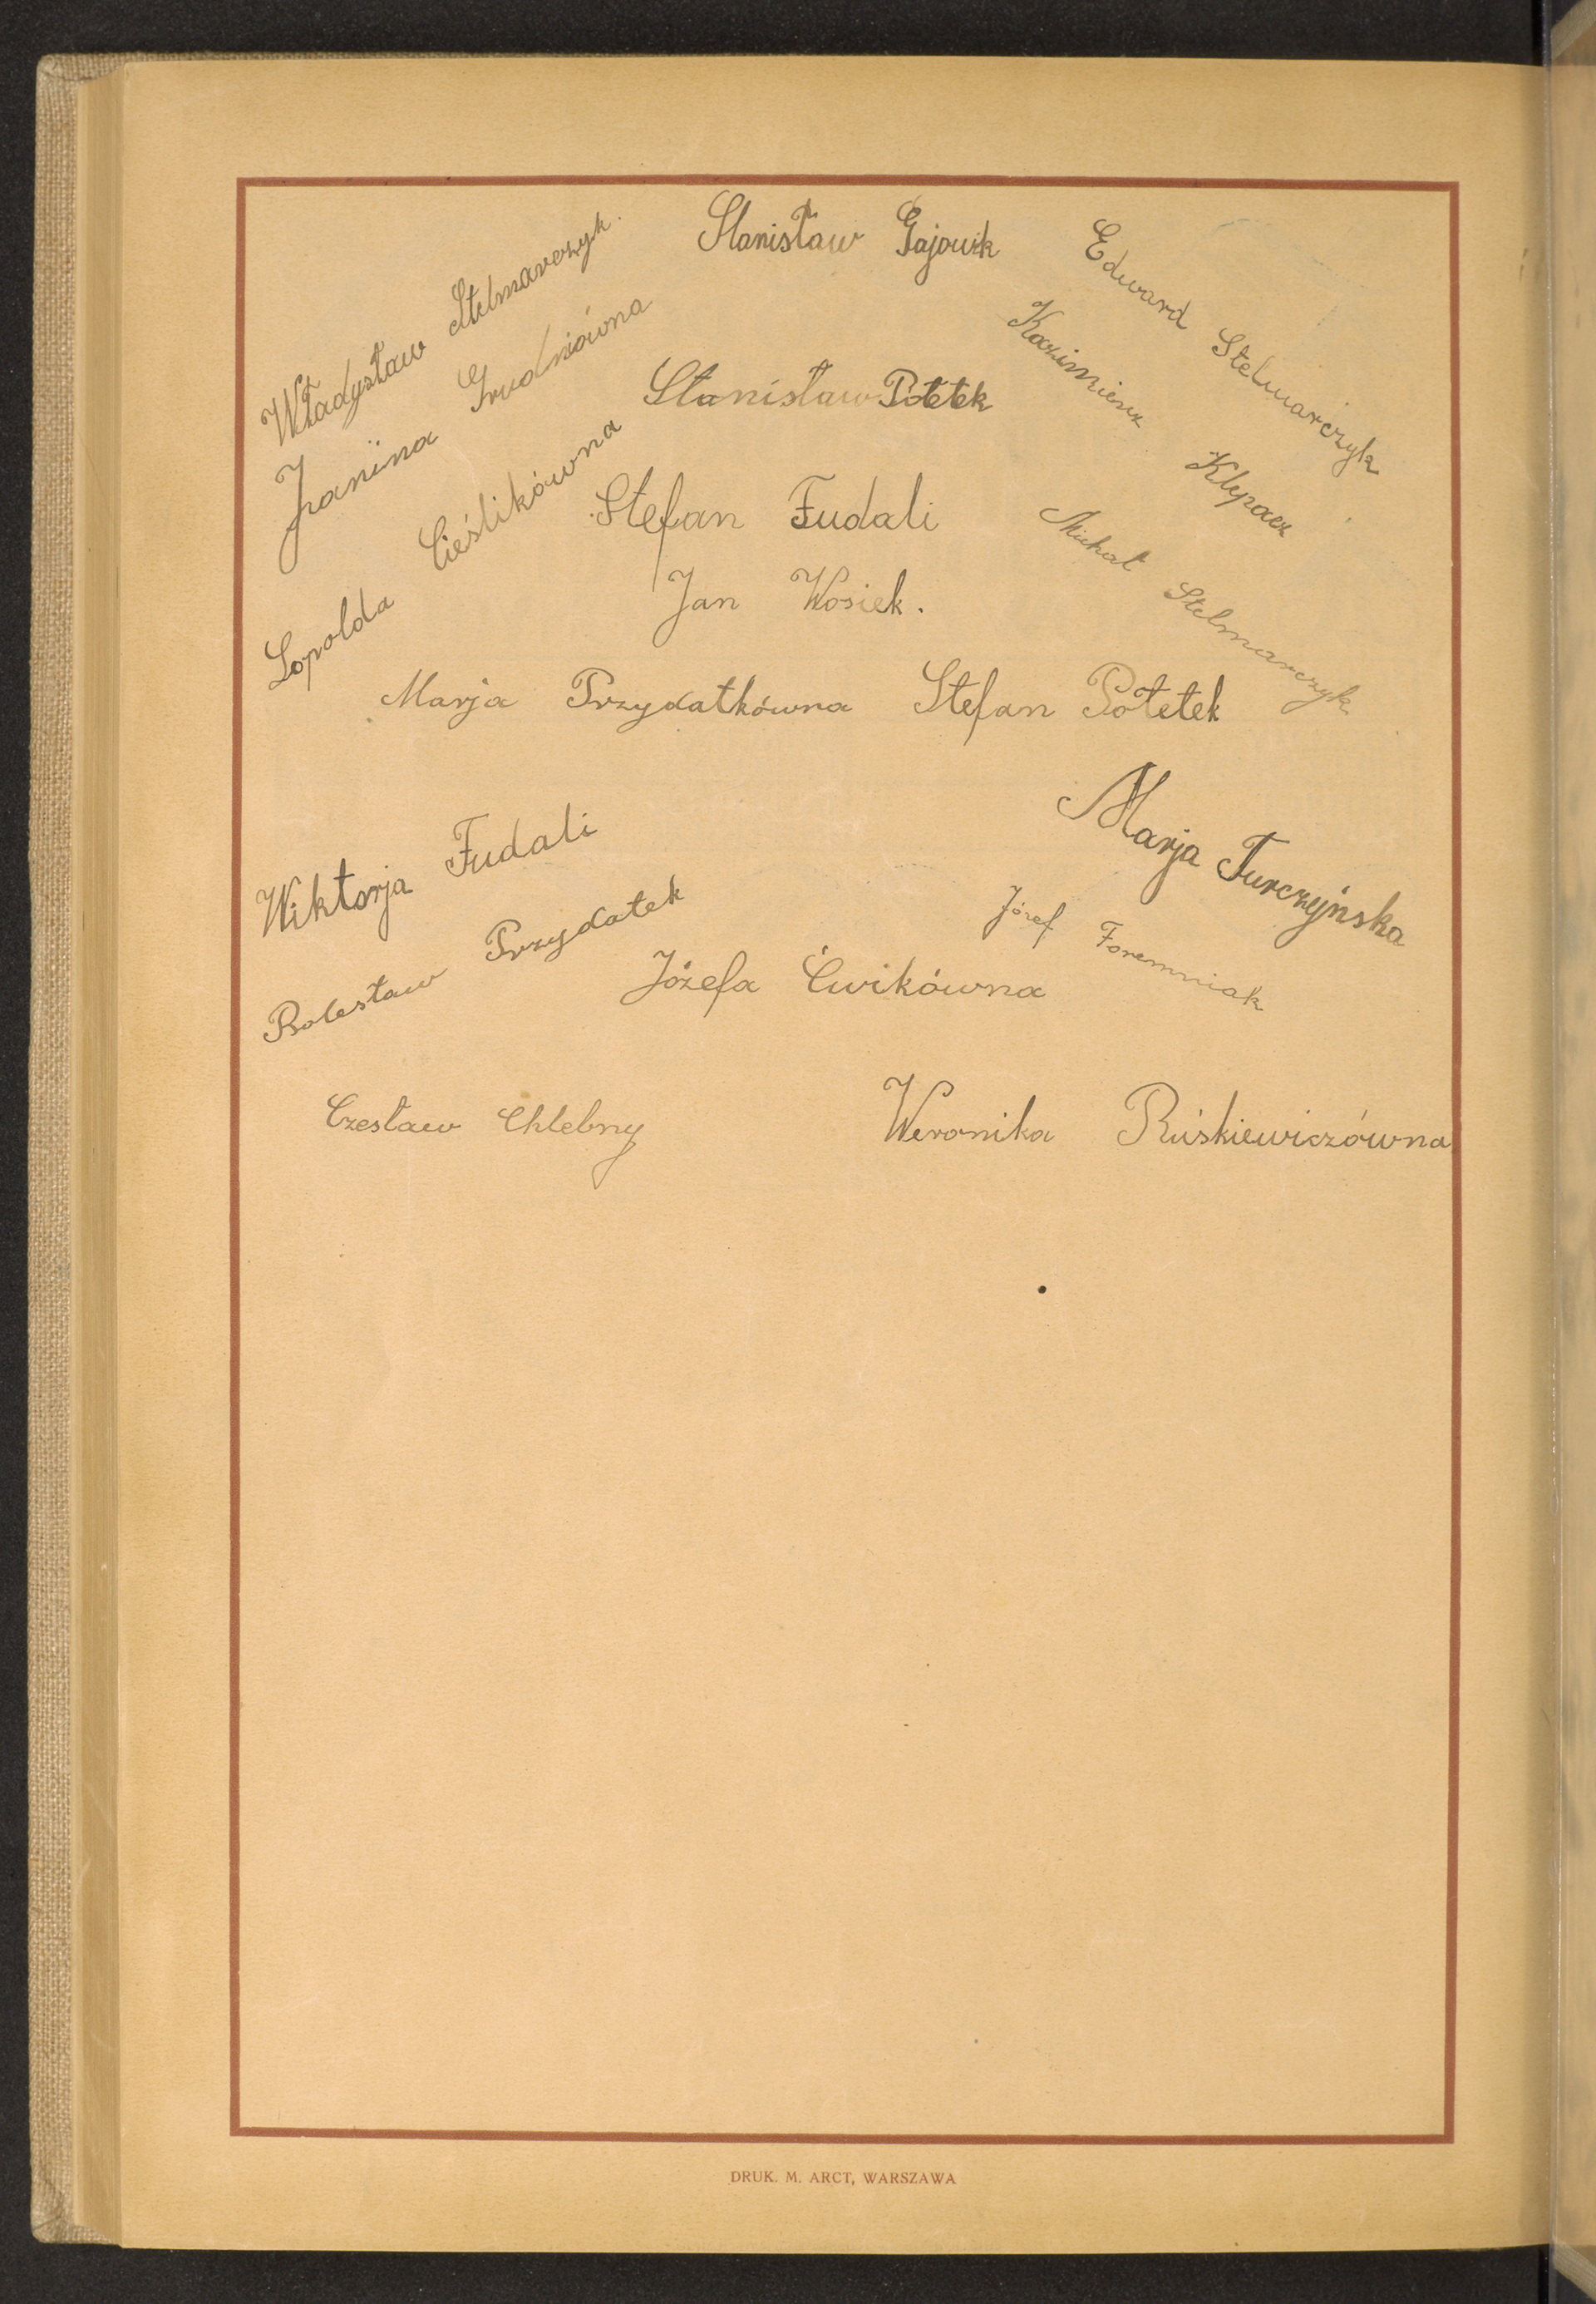 Władysław Stelmarczyk.
Stanisław Gajowik
Edward Stelmarczyk
Janina Grudniówna
Kazimierz Klepacz
Stanisław Potetek
Lopolda Cieślikówna
Stefan Fudali
Michał Stelmarczyk
Jan Wosiek.
Marja Przydatkówna
Stefan Potetek
Wiktorja Fudali
Marja Turczyńska
Bolesław Przydatek
Józef Foremniak
Józefa Ćwikówna
Czesław Chlebny
Weronika Ruśkiewiczówna
DRUK. M. ARCT, WARSZAWA